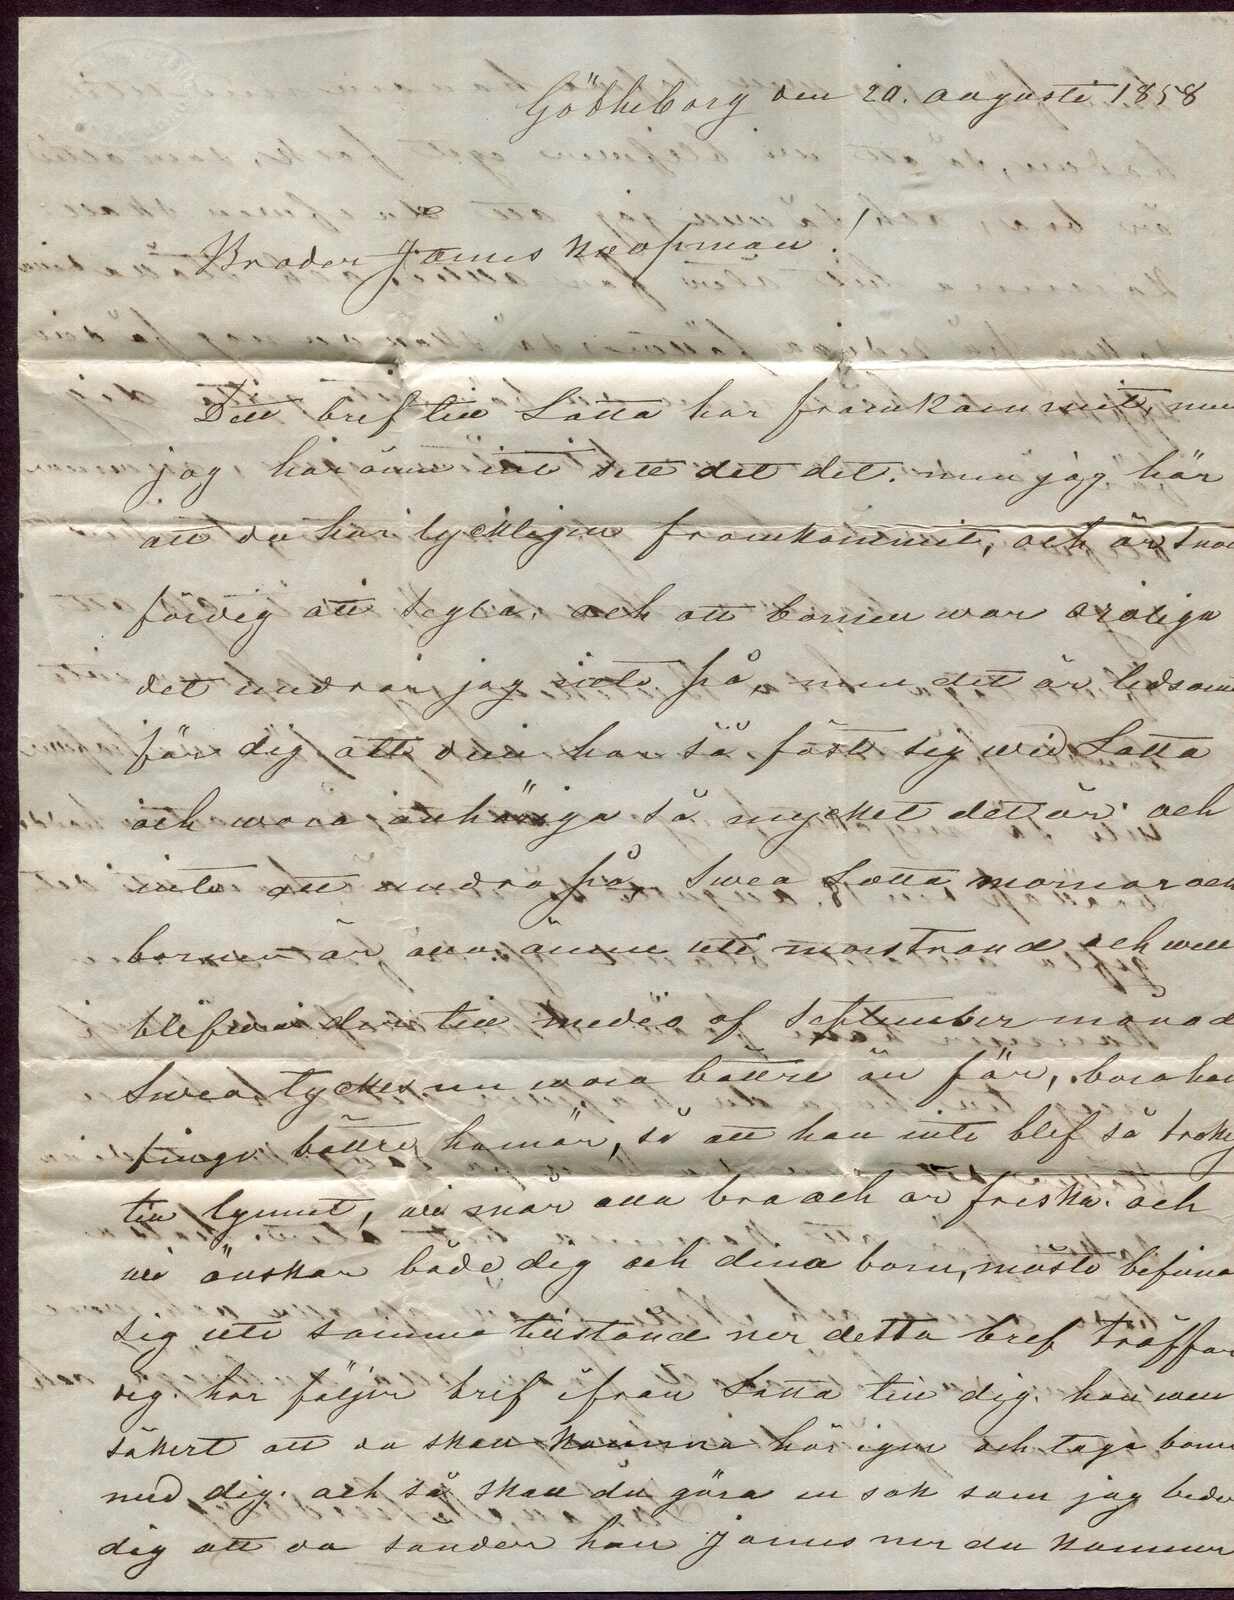 Götheborg den 20. augusti 1858
Broder James Knopman!
Ditt bref till Lotta har framkommit, men
jag har ännu inte sett det det. men jag hör
att du har lyckligen framkommit, och är
färdig att segla. och att barnen war oroliga
det undrar jag inte på, men det är ledsamt
för dig att dem har så fäst sig wid Lotta
och wåra anhöriga så mycket det är och
inte att undra på, Swea Lotta mormor och
barnen är ännu uti marstrand och will
blifwa der till medio af September månad
Swea tyckes nu wara bättre än för, bara han
finge bättre humör, så att han inte blef så
till lynnet, wi mår alla bra och är friska. och
wi önskar både dig och dina barn, måste befinna
sig uti samma tillstånd ner detta bref träffar
dig. här följer bref ifrån Lotta till dig. hon will
säkert att du skall komma här igen och taga barnen
med dig. och så skall du göra en sak som jag beder
dig att du sänder hem James ner du kommer